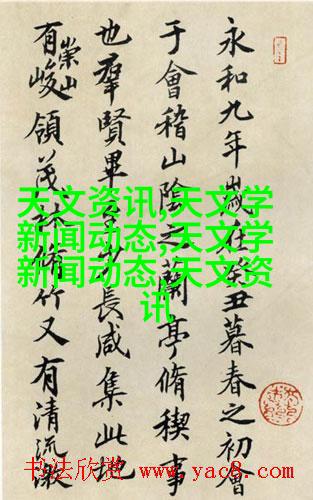 永和九年歲在癸丑暮春之初會
于會稽山陰之蘭亭脩稧事
也羣賢畢至少長咸集此地
有崇山峻領茂林脩竹又有清流激
天文资讯,天文学
新闻动态,天文学
新闻动态,天文资
讯
书法欣赏 www.yac8.com